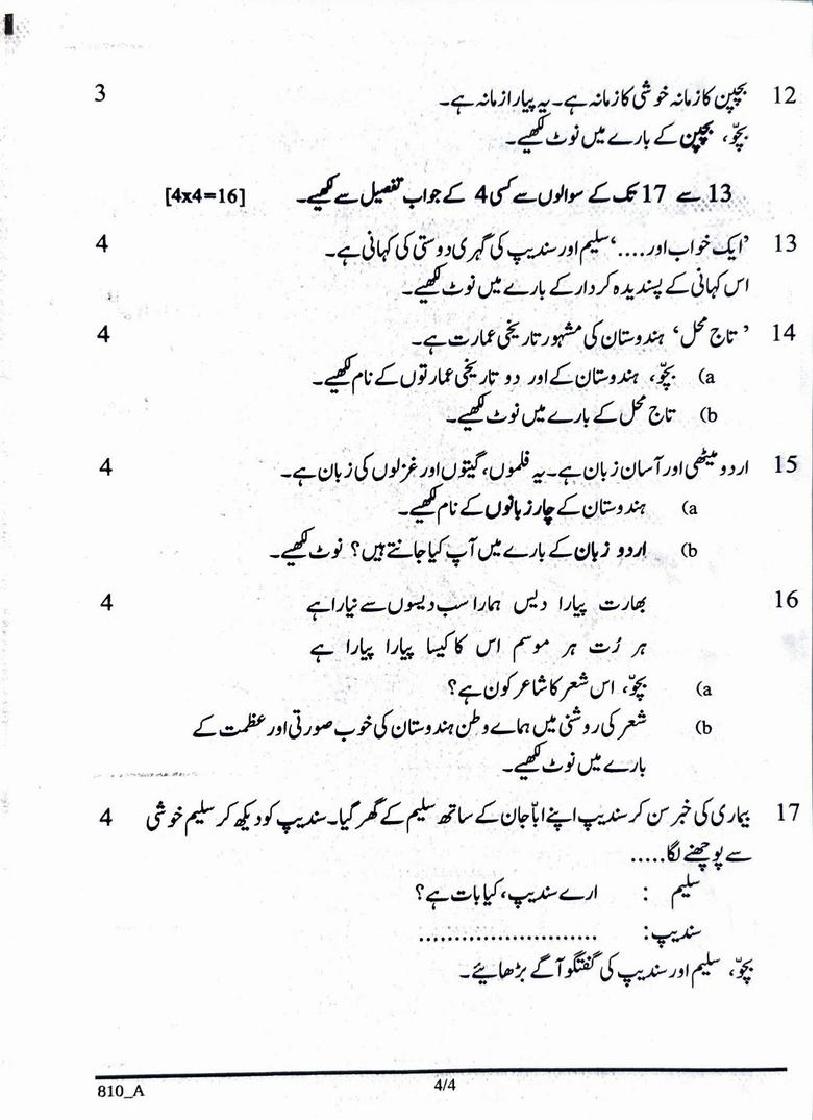 12 بچپن کا زمانہ خوشی کا زمانہ ہے۔ یہ پیارا زمانہ ہے۔ 3
بچّو، بچپن کے بارے میں نوٹ لکھیے۔
13 سے 17 تک کے سوالوں سے کسی 4 کے جواب تفصیل سے لکھیے۔ [4x4=16]
13 ’ایک خواب اور....‘ سلیم اور سندیپ کی گہری دوستی کی کہانی ہے۔ 4
اس کہانی کے پسندیدہ کردار کے بارے میں نوٹ لکھیے۔
14 ’تاج محل‘ ہندوستان کی مشہور تاریخی عمارت ہے۔ 4
a) بچّو، ہندوستان کے اور دو تاریخی عمارتوں کے نام لکھیے۔
b) تاج محل کے بارے میں نوٹ لکھیے۔
15 اردو میٹھی اور آسان زبان ہے۔ یہ فلموں، گیتوں اور غزلوں کی زبان ہے۔ 4
a) ہندوستان کے چار زبانوں کے نام لکھیے۔
b) اردو زبان کے بارے میں آپ کیا جانتے ہیں؟ نوٹ لکھیے۔
16 بھارت پیارا دیس ہمارا سب دیسوں سے نیارا ہے 4
ہر رُت ہر موسم اس کا کیسا پیارا پیارا ہے
a) بچّو، اس شعر کا شاعر کون ہے؟
b) شعر کی روشنی میں ہمارے وطن ہندوستان کی خوب صورتی اور عظمت کے
بارے میں نوٹ لکھیے۔
17 بیماری کی خبر سن کر سندیپ اپنے ابّا جان کے ساتھ سلیم کے گھر گیا۔ سندیپ کو دیکھ کر سلیم خوشی 4
سے پوچھنے لگا.....
سلیم : ارے سندیپ، کیا بات ہے؟
سندیپ: .........................
بچّو، سلیم اور سندیپ کی گفتگو آگے بڑھایئے۔
810_A 4/4